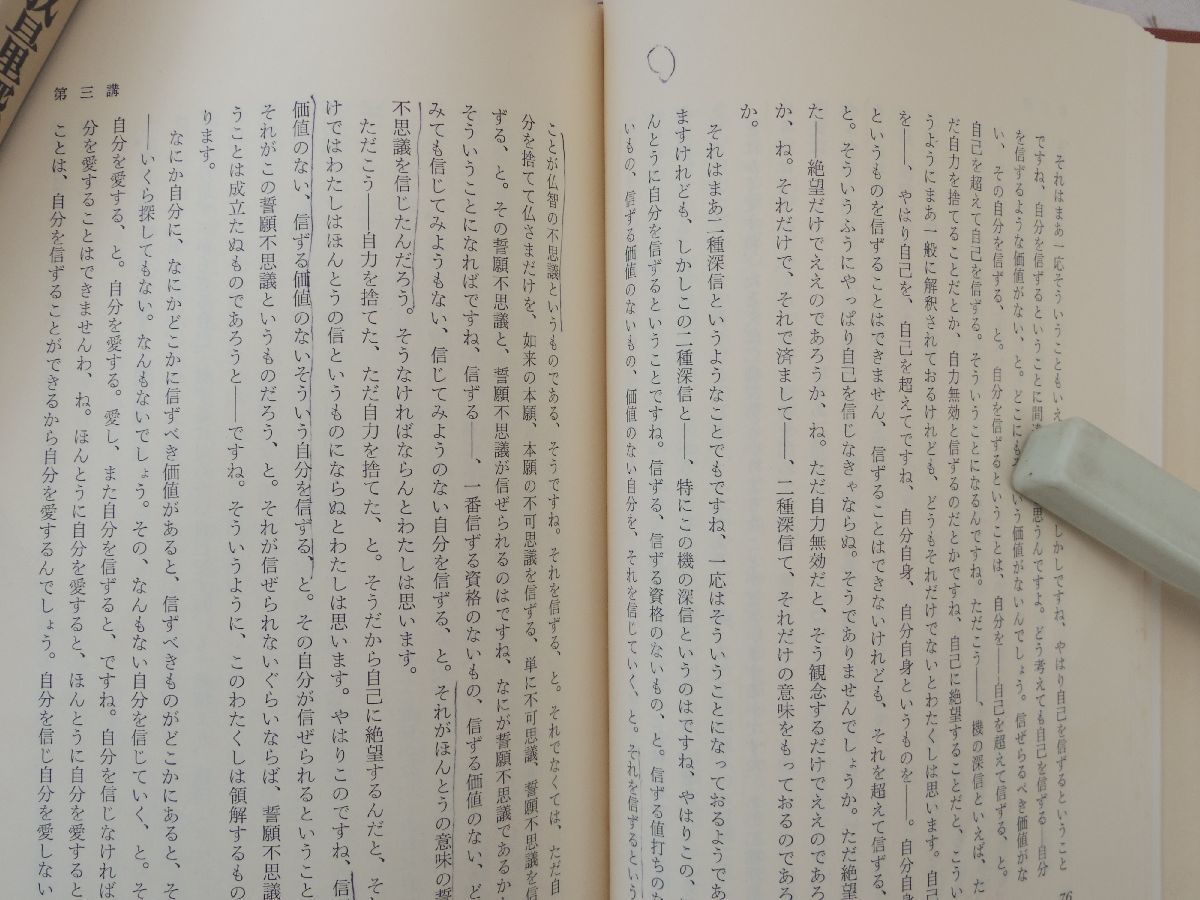 それはまあ一応そういうこともいえ しかしですね、やはり自己を信ずるということ
ですね、自分を信ずるということに間違 思うんですよ。どう考えても自己を信ずる――自分
を信ずるような価値がない、と。どこにも いう価値がないんでしょう。信ぜらるべき価値がな
い、その自分を信ずる、と。自分を信ずるということは、自分を――自己を超えて信ずる、と。
自己を超えて自己を信ずる。そういうことになるんですね。ただこう――、機の深信といえば、た
だ自力を捨てることだとか、自力無効と信ずるのだとかですね、自己に絶望することだと、こうい
うようにまあ一般に解釈されておるけれども、どうもそれだけでないとわたくしは思います。自己
を――、やはり自己を、自己を超えてですね、自分自身、自分自身というものを――。自分自身
というものを信ずることはできません、信ずることはできないけれども、それを超えて信ずる、
と。そういうふうにやっぱり自己を信じなきゃならぬ。そうでありませんでしょうか。ただ絶望
た――絶望だけでええのであろうか、ね。ただ自力無効だと、そう観念するだけでええのであろ
か、ね。それだけで、それで済まして――、二種深信て、それだけの意味をもっておるのであろ
か。
それはまあ二種深信というようなことでもですね、一応はそういうことになっておるようであ
ますけれども、しかしこの二種深信と――、特にこの機の深信というのはですね、やはりこの、
んとうに自分を信ずるということですね。信ずる、信ずる資格のないもの、と。信ずる値打ちのな
いもの、信ずる価値のないもの、価値のない自分を、それを信じていく、と。それを信ずるという
76
ことが仏智の不思議というものである、そうですね。それを信ずる、と。それでなくては、ただ自
分を捨てて仏さまだけを、如来の本願、本願の不可思議を信ずる、単に不可思議、誓願不思議を信
ずる、と。その誓願不思議と、誓願不思議が信ぜられるのはですね、なにが誓願不思議であるか
そういうことになればですね、信ずる――、一番信ずる資格のないもの、信ずる価値のない、ど
みても信じてみようもない、信じてみようのない自分を信ずる、と。それがほんとうの意味の誓
不思議を信じたんだろう。そうなければならんとわたしは思います。
ただこう――自力を捨てた、ただ自力を捨てた、と。そうだから自己に絶望するんだと、そ
けではわたしはほんとうの信というものにならぬとわたしは思います。やはりこのですね、信
価値のない、信ずる価値のないそういう自分を信ずる、と。その自分が信ぜられるということ
それがこの誓願不思議というものだろう、と。それが信ぜられないぐらいならば、誓願不思
うことは成立たぬものであろうと――ですね。そういうように、このわたくしは領解するもの
ります。
なにか自分に、なにかどこかに信ずべき価値があると、信ずべきものがどこかにあると、そ
――いくら探してもない。なんもないでしょう。その、なんもない自分を信じていく、と。そ
自分を愛する、と。自分を愛する。愛し、また自分を信ずると、ですね。自分を信じなければ
分を愛することはできませんわ、ね。ほんとうに自分を愛すると、ほんとうに自分を愛すると
ことは、自分を信ずることができるから自分を愛するんでしょう。自分を信じ自分を愛しない
第三講